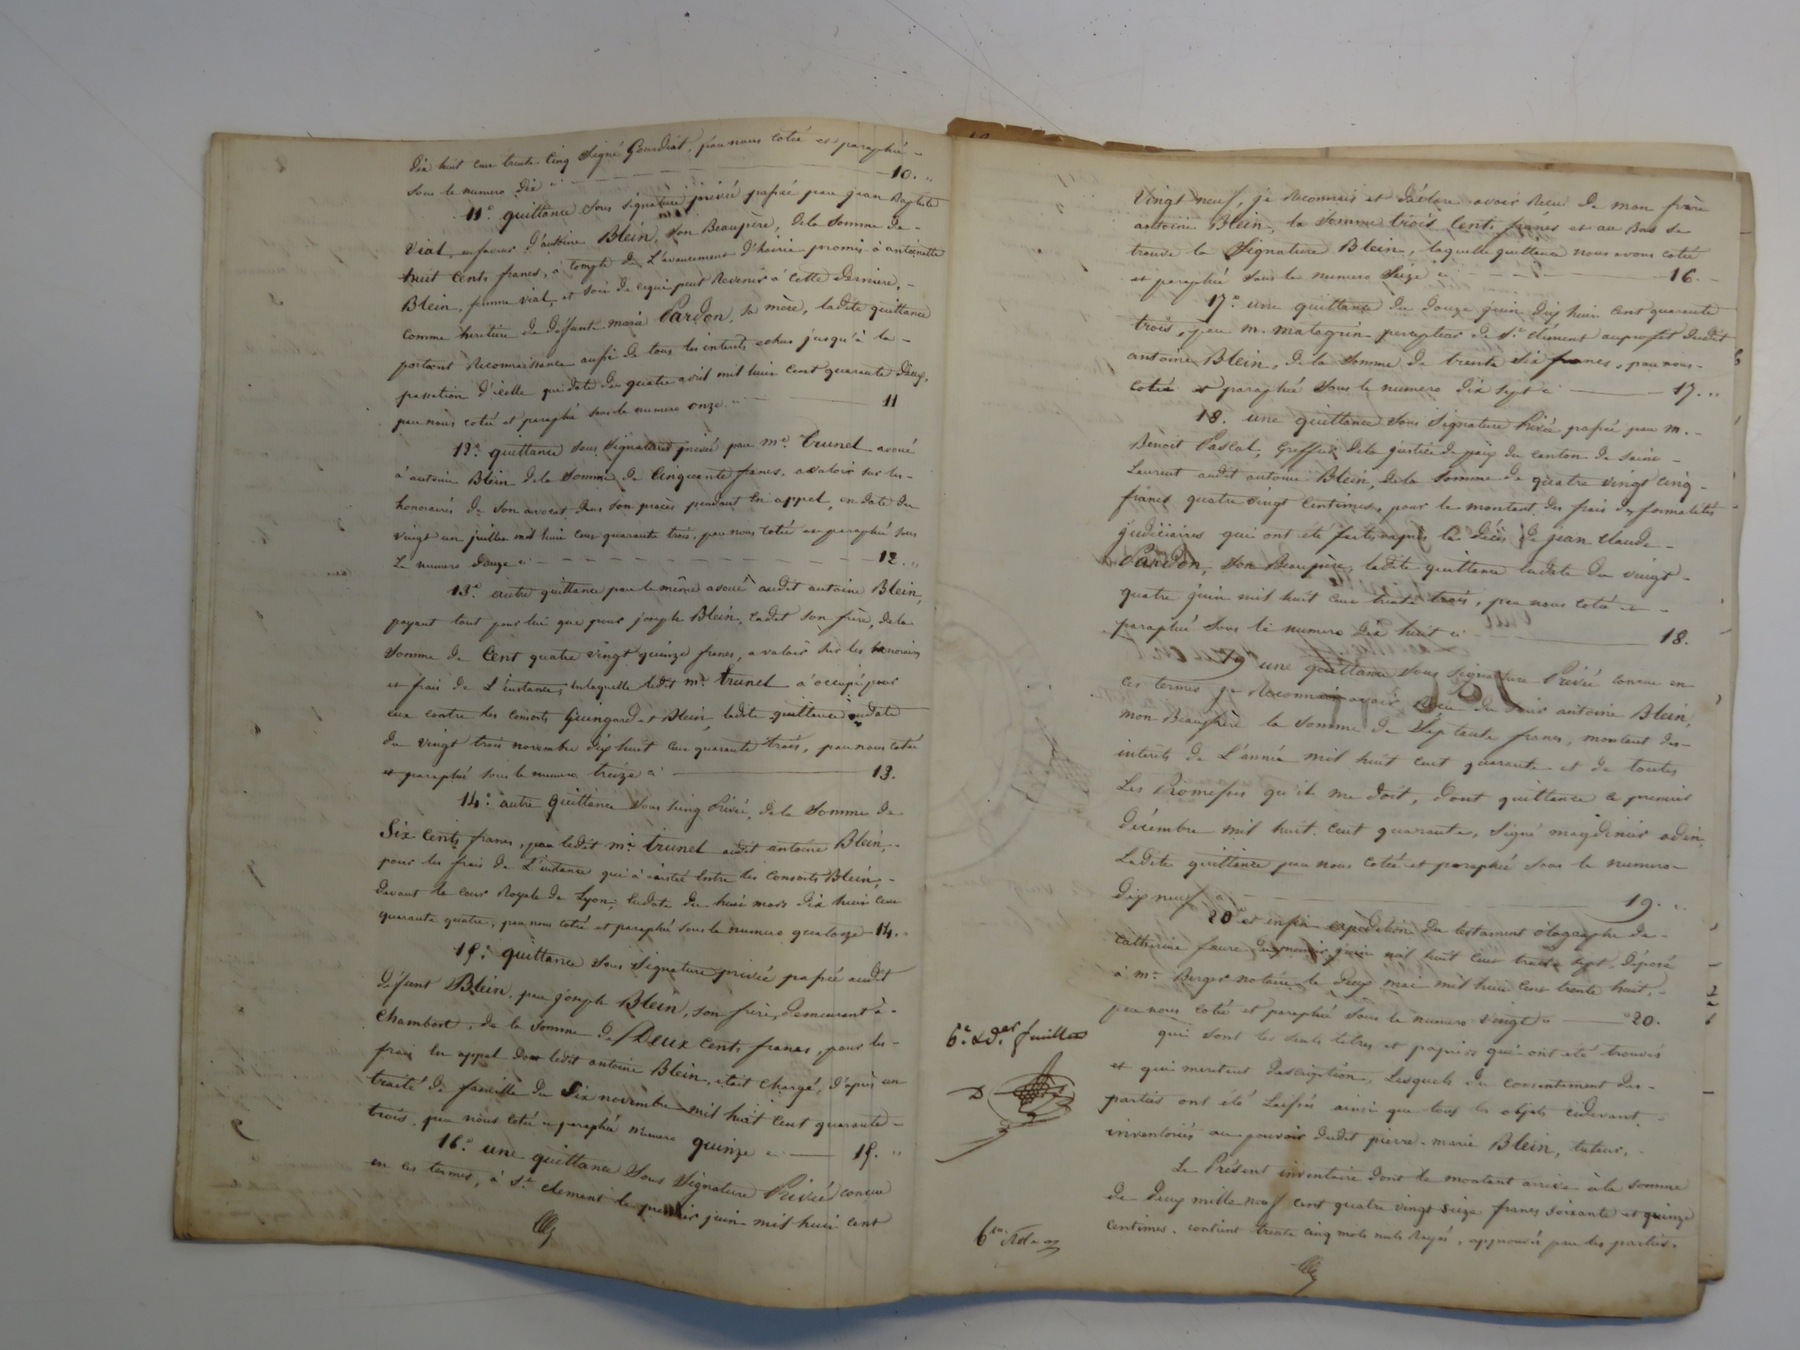 dix huit cent trente cinq signé Gourdiat, par nous coté et paraphé -
sous le numero dix ci — 10. "
11.° quittance sous signature privée passée par jean Baptiste
Vial, en faveur d'antoine Blein, son Beaupère, de la somme de -
huit cents francs, à compte de L'avancement d'hoirie promis à antoinette
Blein, femme vial, et soit de ce qui peut Revenir à cette derniere, -
comme héritiere de deffunte marie Pardon, sa mère, ladite quittance
portant Reconnaissance aussi de tous les interets echus jusqu'à la -
passation d'icelle qui date du quatre avril mil huit cent quarante deux,
par nous coté et paraphé sous le numero onze ci — 11
12.° quittance sous signature privée par m.e trunel avoué
à antoine Blein de la somme de Cinquante francs, avaloir sur les -
honoraires de son avocat dans son procès pendant en appel, en date du
vingt un juillet mil huit cent quarante trois, par nous cotée et paraphé sous
Le numero douze ci — 12. "
13.° autre quittance par le même avoué audit antoine Blein,
payant tant pour lui que pour joseph Blein, cadet son frère, de la
somme de Cent quatre vingt quinze francs, a valoir sur les honoraires
et frais de L'instance, en laquelle ledit m.e trunel a occupé pour
eux contre les consorts Guingard et Blein, ladite quittance en date
du vingt trois novembre dix huit cent quarante trois, par nous cotée
et paraphé sous le numero treize ci — 13.
14.° autre quittance sous seing Privé, de la somme de
Six Cents francs, par ledit m.e trunel audit antoine Blein, -
pour les frais de L'instance qui à existée Entre les Consorts Blein, -
devant la cour Royale de Lyon, en date du huit mars dix huit cent
quarante quatre, par nous coté et paraphé sous le numero quatorze - 14. "
15.° quittance sous signature privée passée audit
défunt Blein, par joseph Blein, son frère, demeurant à -
Chambost, de la somme de Deux Cents francs, pour les -
frais en appel dont ledit antoine Blein, était chargé, d'après un
traité de famille du Six novembre mil huit Cent quarante -
trois, par nous coté et paraphé numero quinze ci — 15. "
16.° une quittance Sous Signature Privée conçue
en ces termes, à S.t clement le premier juin mil huit cent
Vingt neuf, je Reconnais et déclare avoir Recu de mon frère
antoine Blein, la somme trois Cents francs et au Bas se
trouve la Signature Blein, laquelle quittance nous avons cotée
et paraphé sous le numero Seize ci — 16. -
17.° une quittance du douze juin dix huit Cent quarante
trois, par m. matagrin percepteur de S.t clément au profit dudit
antoine Blein, de la somme de trente six francs, par nous -
cotée et paraphé sous le numero dix sept ci — 17. "
18.° une quittance sous Signature Privée passée par m. -
Benoit Pascal, Greffier de la justice de paix du canton de saint -
Laurent audit antoine Blein, de la Somme de quatre vingt cinq -
francs quatre vingt Centimes, pour le montant des frais de formalités
judiciaires qui ont été faites après le décès de jean claude -
Pardon, son Beaupère, ladite quittance en date du vingt -
quatre juin mil huit cent trente trois, par nous cotée et -
paraphé sous le numero dix huit ci — 18.
19 une quittance sous signature Privée concue en
ces termes, je Reconnais avoir Recu du sieur antoine Blein,
mon Beaupère la Somme de Septente francs, montant des -
interets de L'année mil huit cent quarante et de toutes
Les Promesses qu'il me doit, dont quittance le premier
decembre mil huit cent quarante, signé magdinier odin,
Ladite quittance par nous cotée et paraphé sous le numero -
dix neuf ci — 19. "
20° et enfin expedition du testament olographe de -
Catherine faure du premier juin mil huit cent trente sept, déposé
à m.e Berger notaire le deux mai mil huit cent trente huit, -
par nous coté et paraphé sous le numero vingt ci — 20.
qui sont les seuls titres et papiers qui ont été trouvés
et qui meritent description, Lesquels du consentement des -
parties ont été Laissés ainsi que tous les objets cidevant -
inventoriés au pouvoir dudit pierre-marie Blein, tuteur, -
Le Présent inventaire dont le montant arrive à la somme
de deux mille neuf cent quatre vingt seize francs soixante et quinze
centimes, contient trente cinq mots nuls Rayés, approuvés par les parties.
6.e & d.er feuillet
D
6.me Rôle